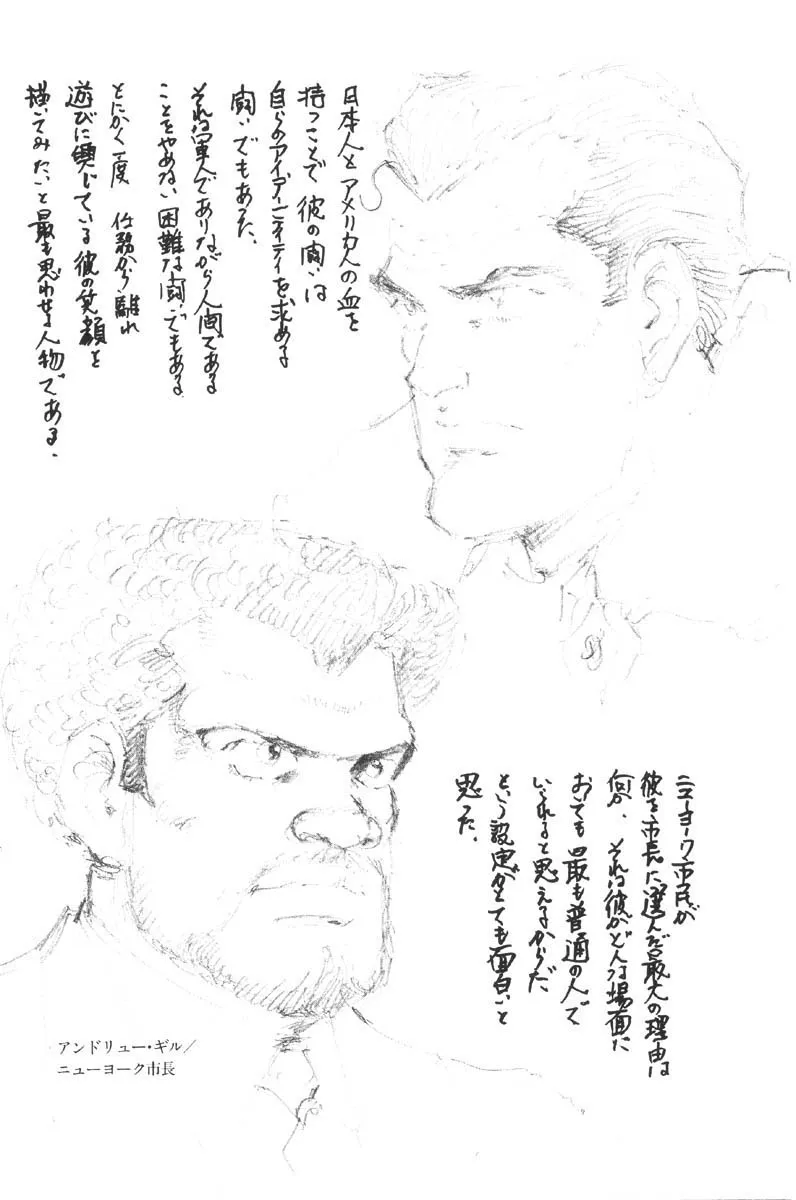 日本人とアメリカ人の血を
持つことで彼の闘いは
自らのアイデンティティを求める
闘いでもあった、
それは軍人でありながら人間である
ことをやめない困難な闘いでもある、
とにかく一度 仕務から離れ
遊びに興じている彼の笑顔を
描いてみたいと最も思わせる人物である、
ニューヨーク市民が
彼を市長に選んだ最大の理由は
何か、それは彼がどんな場面に
おいても最も普通の人で
いられると思えるからだ
という設定がとても面白いと
思った、
アンドリュー・ギル／
ニューヨーク市長